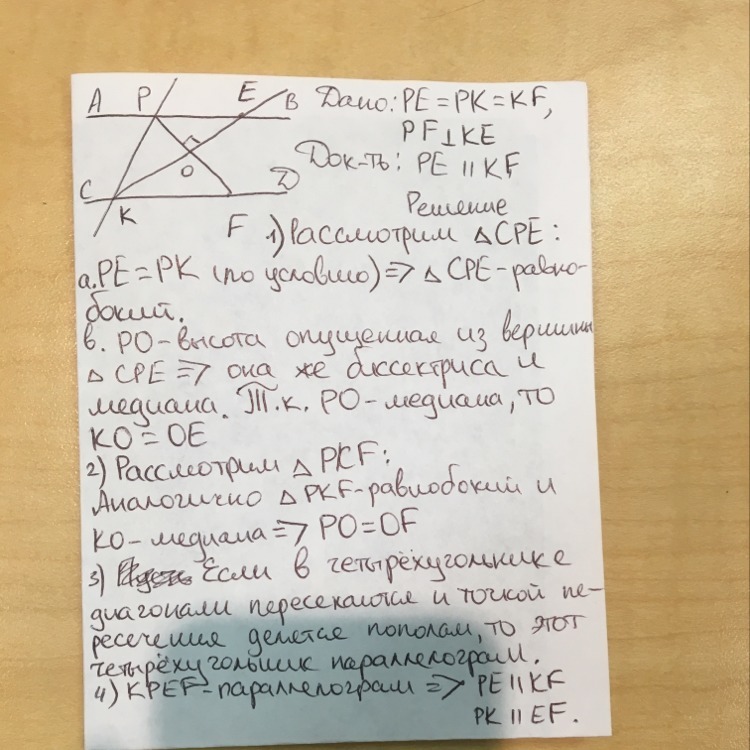 A P E B Дано: PE = PK = KF,
PF ⊥ KE
O Док-ть: PE || KF
C D
K F Решение
1) Рассмотрим △ CPE:
а. PE = PK (по условию) => △ CPE - равно-
бокий.
в. PO - высота опущенная из вершины
△ CPE => она же биссектриса и
медиана. Т.к. PO - медиана, то
KO = OE
2) Рассмотрим △ PKF:
Аналогично △ PKF - равнобокий и
KO - медиана => PO = OF
3) Если в четырёхугольнике
диагонали пересекаются и точкой пе-
ресечения делятся пополам, то этот
четырёхугольник параллелограм.
4) KPEF - параллелограм => PE || KF
PK || EF.